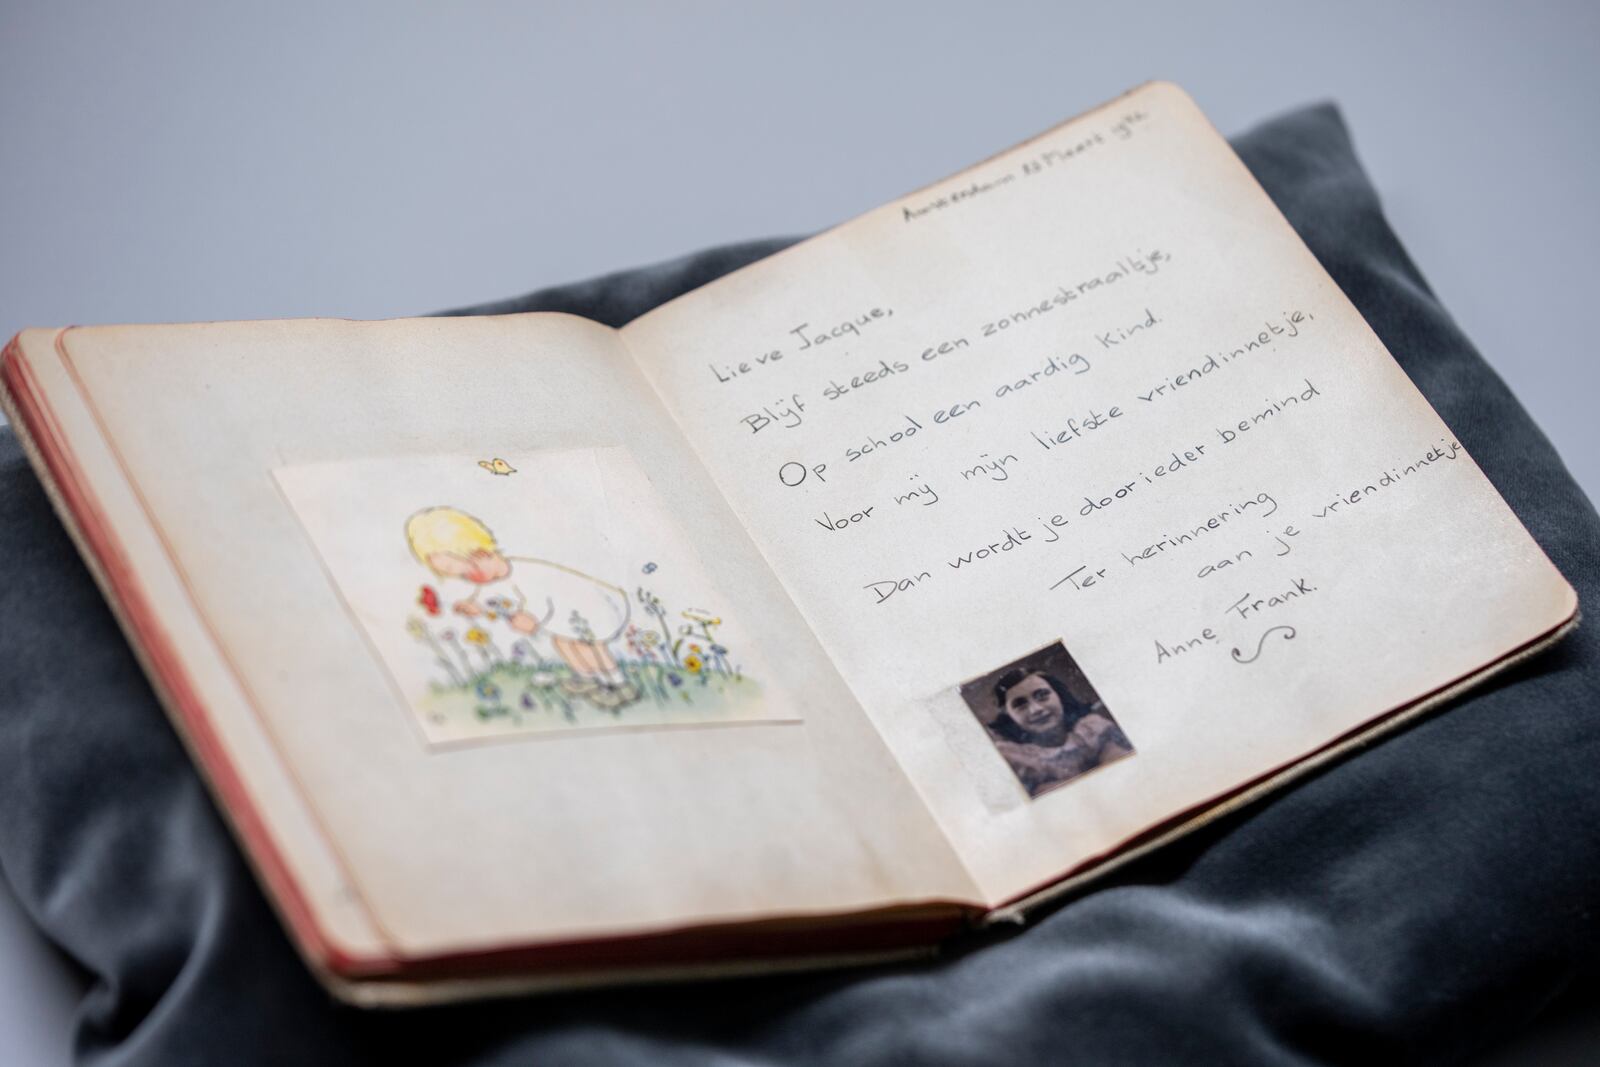 Amsterdam 23 Maart
Lieve Jacque,
Blijf steeds een zonnestraaltje,
Op school een aardig kind.
Voor mij mijn liefste vriendinnetje,
Dan wordt je door ieder bemind
Ter herinnering
aan je vriendinnetje
Anne Frank.